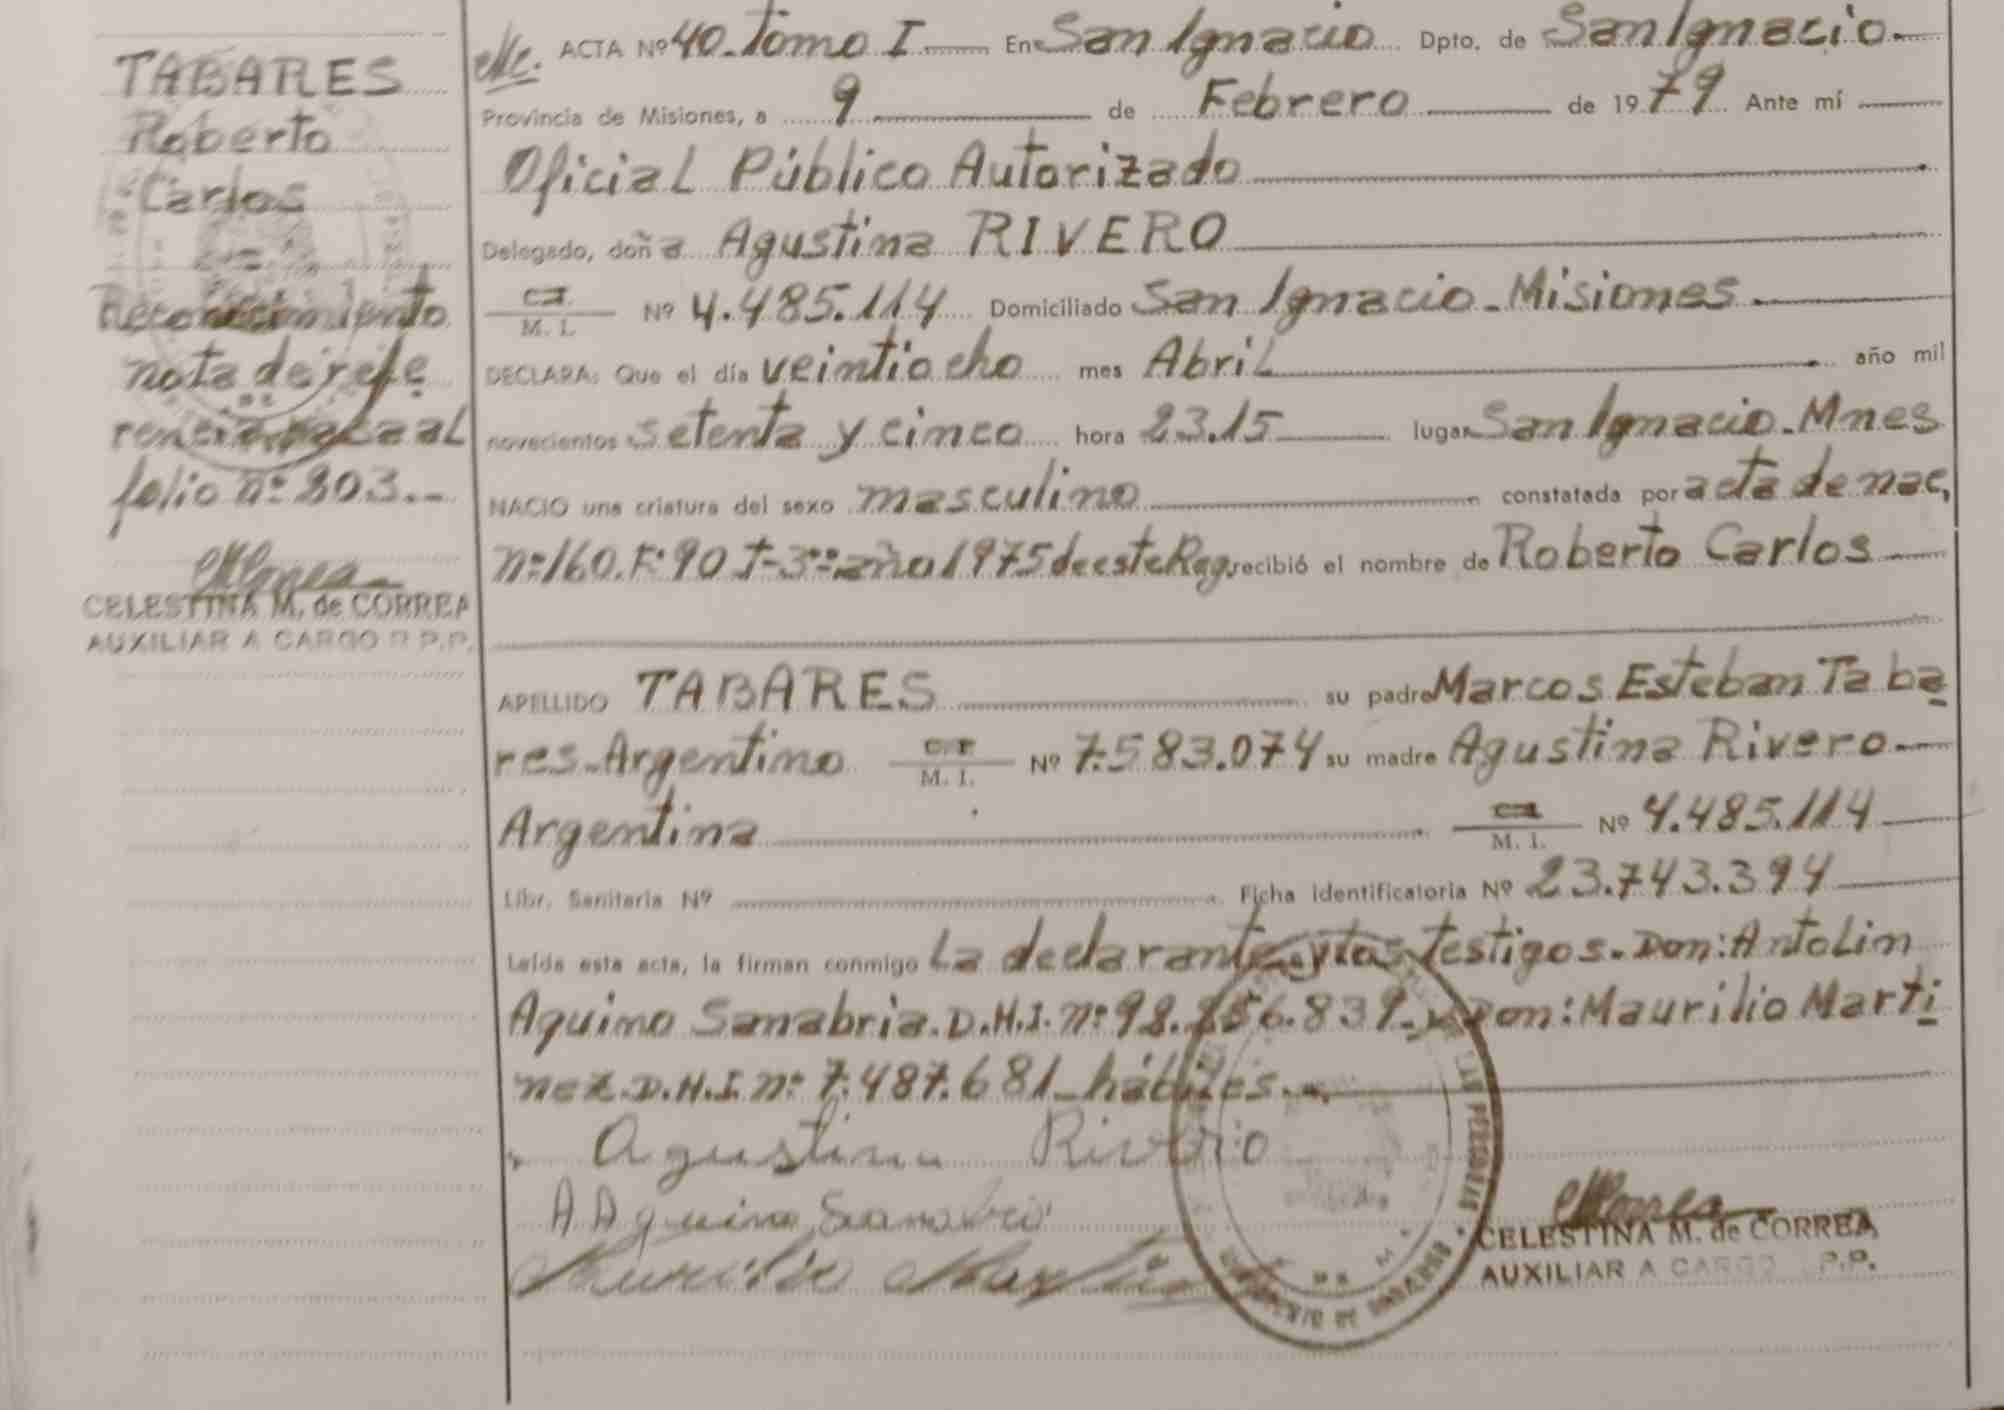 TABARES
Roberto
Carlos
Reconocimiento
nota de refe
rencia pasa al
folio nº 203.-
CELESTINA M. de CORREA
AUXILIAR A CARGO P.P.
ACTA Nº 40. Tomo I En San Ignacio Dpto. de San Ignacio.
Provincia de Misiones, a 9 de Febrero de 1979 Ante mí
Oficial Público Autorizado
Delegado, doña Agustina RIVERO
M. I. Nº 4.485.114 Domiciliado San Ignacio - Misiones.
DECLARA: Que el día veintiocho mes Abril año mil
novecientos setenta y cinco hora 23.15 lugar San Ignacio - Mnes
NACIO una criatura del sexo masculino constatada por acta de nac,
nº 160. Fº 90 T-3º año 1975 de este Reg. recibió el nombre de Roberto Carlos
APELLIDO TABARES su padre Marcos Esteban Taba
res - Argentino M. I. Nº 7.583.074 su madre Agustina Rivero.
Argentina M. I. Nº 4.485.114
Libr. Sanitaria Nº Ficha identificatoria Nº 23.743.394
Leída esta acta, la firman conmigo La declarante y los testigos. Don: Antolin
Aquino Sanabria. D.N.I. nº y Don: Maurilio Marti
nez. D.N.I. nº 7.487.681 - hábiles.-
Agustina Rivero
A Aquino Sanabria
Maurilio
CELESTINA M. de CORREA
AUXILIAR A CARGO P.P.